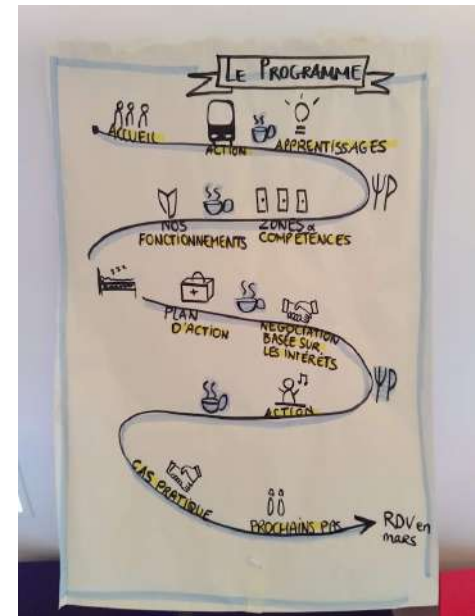 LE PROGRAMME
ACCUEIL
ACTION
APPRENTISSAGES
NOS
FONCTIONNEMENTS
ZONES &
COMPÉTENCES
zzz
PLAN
D'ACTION
NÉGOCIATION
BASÉE SUR
LES INTÉRÊTS
ACTION
CAS PRATIQUE
PROCHAINS PAS
RDV en
mars